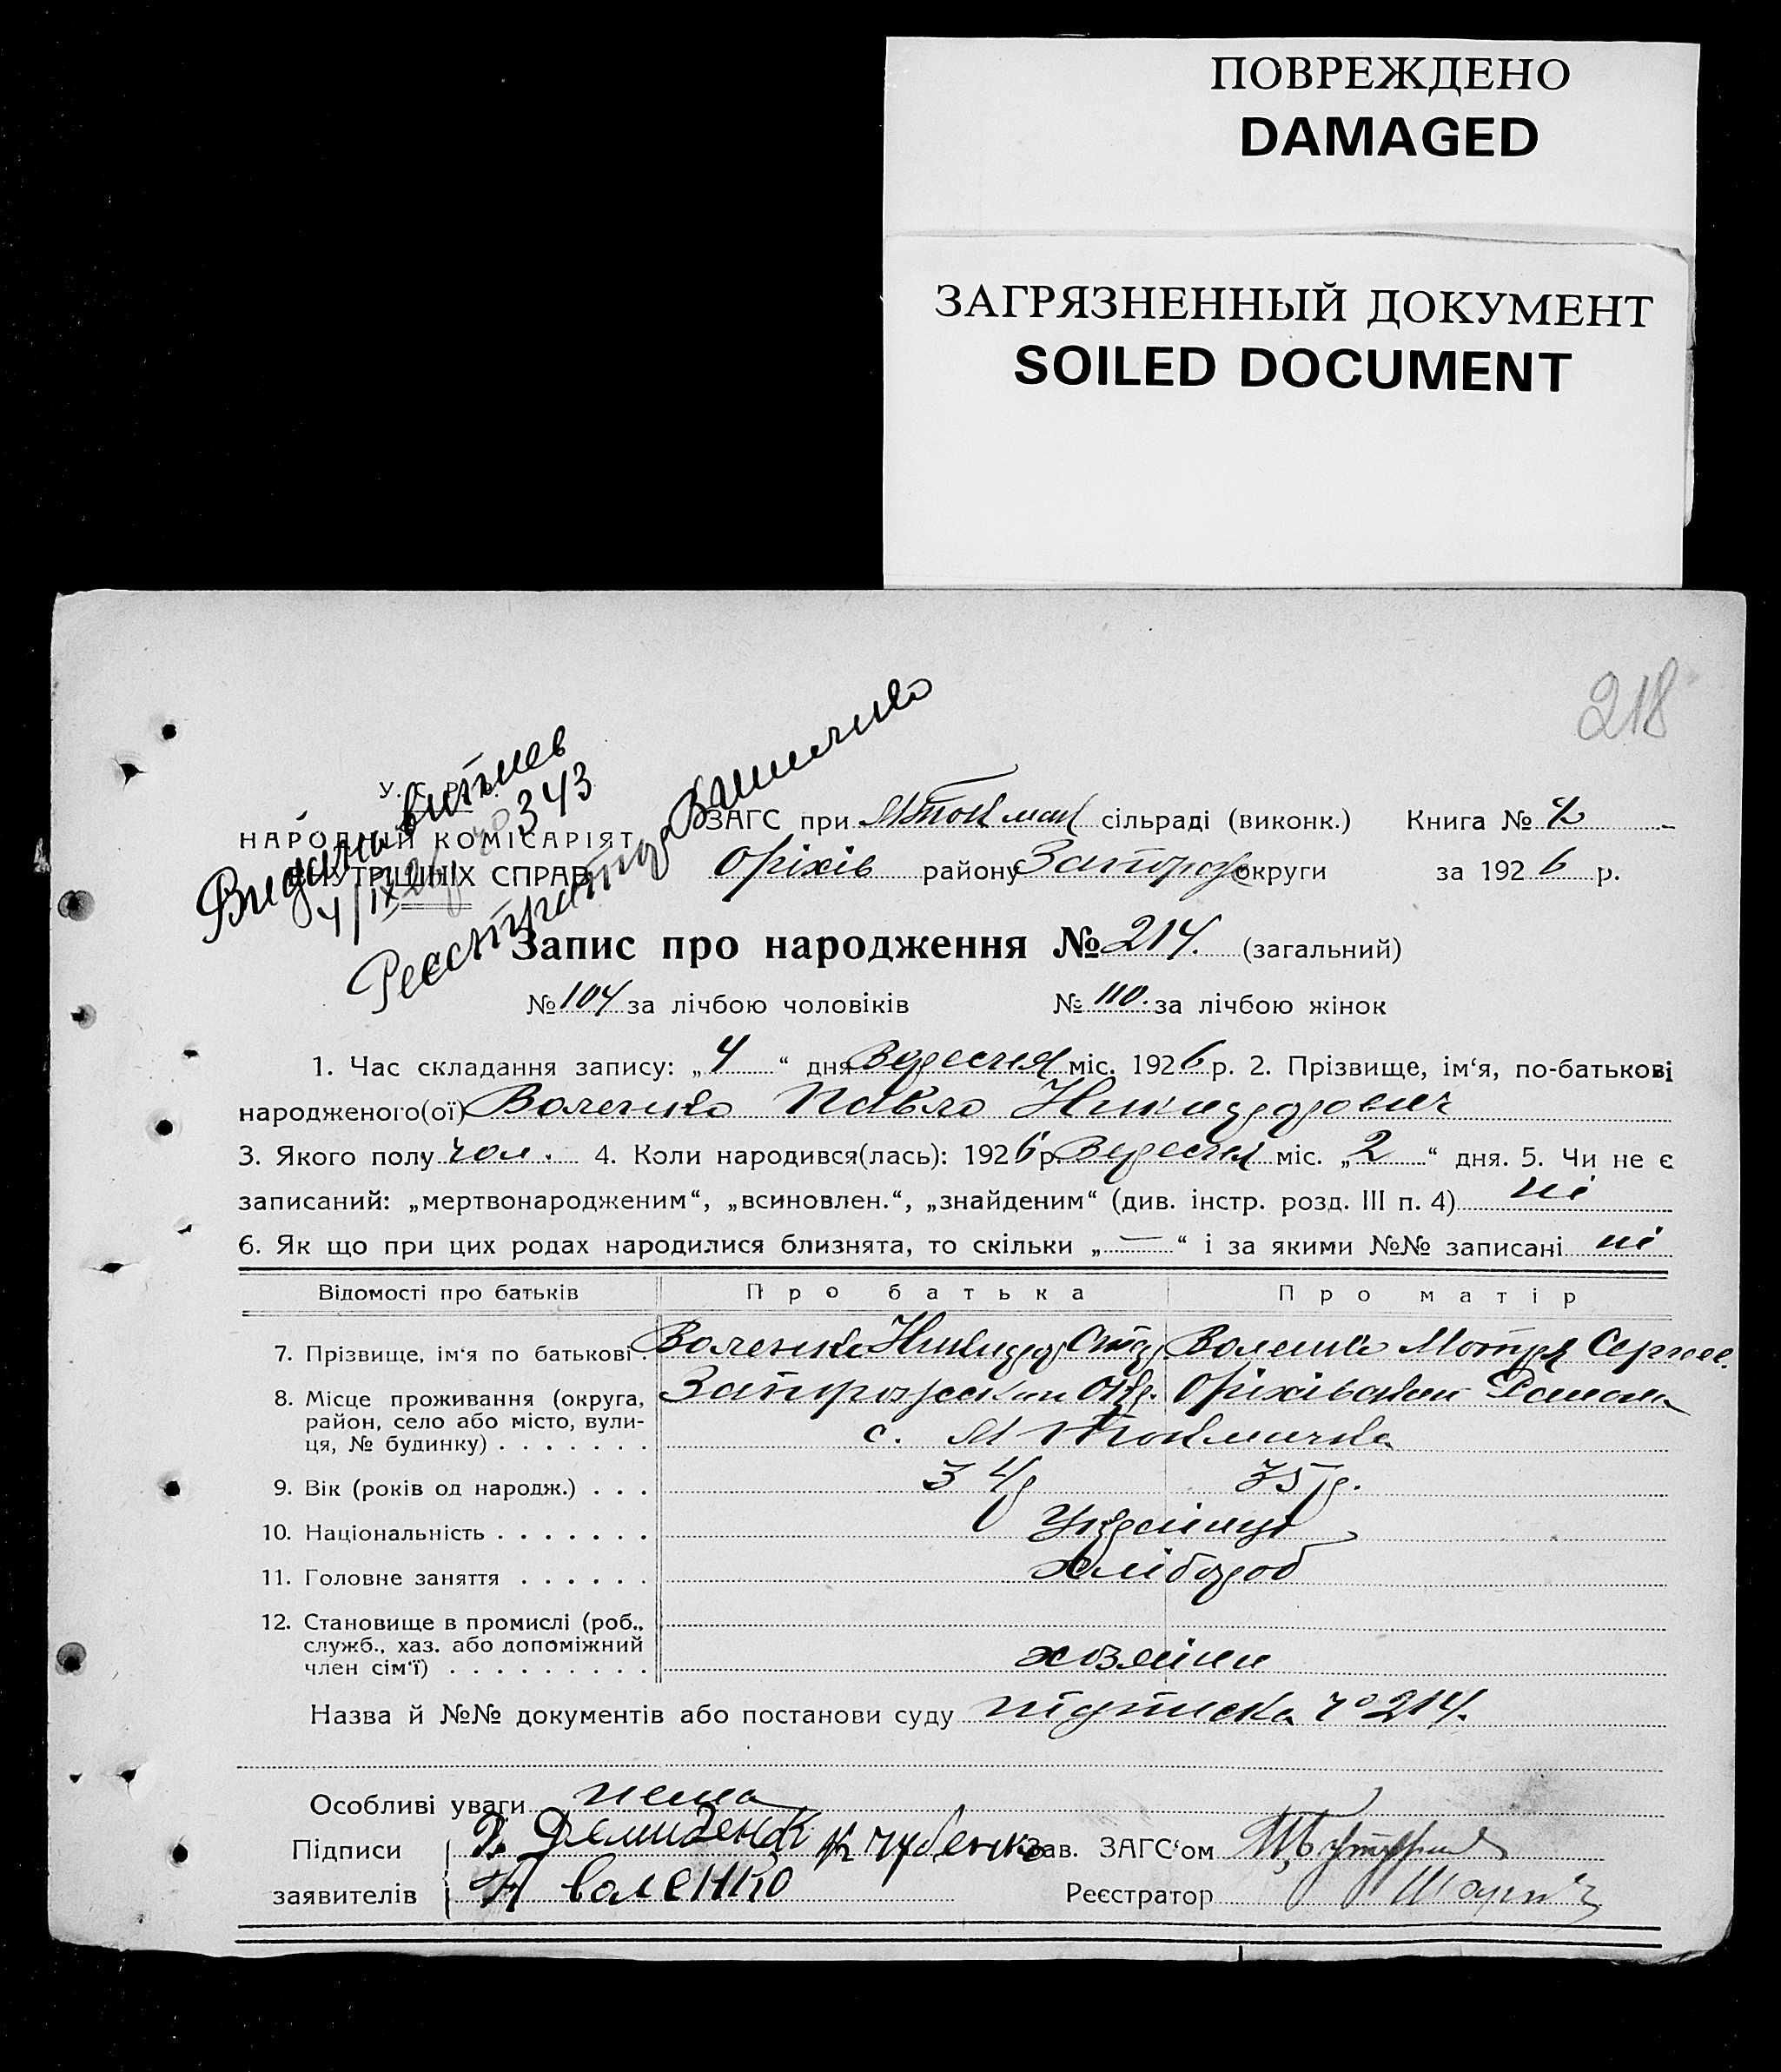 ПОВРЕЖДЕНО
DAMAGED
ЗАГРЯЗНЕННЫЙ ДОКУМЕНТ
SOILED DOCUMENT
218
У. С. Р. Р.
НАРОДНІЙ КОМІСАРІЯТ
ВНУТРІШНІХ СПРАВ
343
4/IX 26
ЗАГС при МТокмач сільраді (виконк.) Книга № 2
Оріхів району Запоріж округи за 1926 р.
Запис про народження № 214. (загальний)
№ 104 за лічбою чоловіків № 110. за лічбою жінок
1. Час складання запису: „4“ дня Вересня міс. 1926 р. 2. Прізвище, ім‘я, по-батькові
народженого(ої) Воленко Павло Никифорович
3. Якого полу чол. 4. Коли народився(лась): 1926 р. Вересня міс. „2“ дня. 5. Чи не є
записаний: „мертвонародженим“, „всиновлен.“, „знайденим“ (див. інстр. розд. III п. 4) ні
6. Як що при цих родах народилися близнята, то скільки „—“ і за якими №№ записані ні
Відомості про батьків Про батька Про матір
7. Прізвище, ім‘я по батькові . Воленко Никифор Воленко Мотря Сергее.
8. Місце проживання (округа, Окр. Оріхівский
район, село або місто, вули-
ця, № будинку) . . . . . . . с. М Токмачка
9. Вік (років од народж.) . . . 34 35
10. Національність . . . . . . . Українці
11. Головне заняття . . . . . . хлібороб
12. Становище в промислі (роб.,
служб., хаз. або допоміжний
член сім‘ї) . . . . . . . . . хозяіни
Назва й №№ документів або постанови суду підписка № 214.
Особливі уваги нема
Підписи Демиденко К Чубенко Зав. ЗАГС‘ом
заявителів Воленко Реєстратор